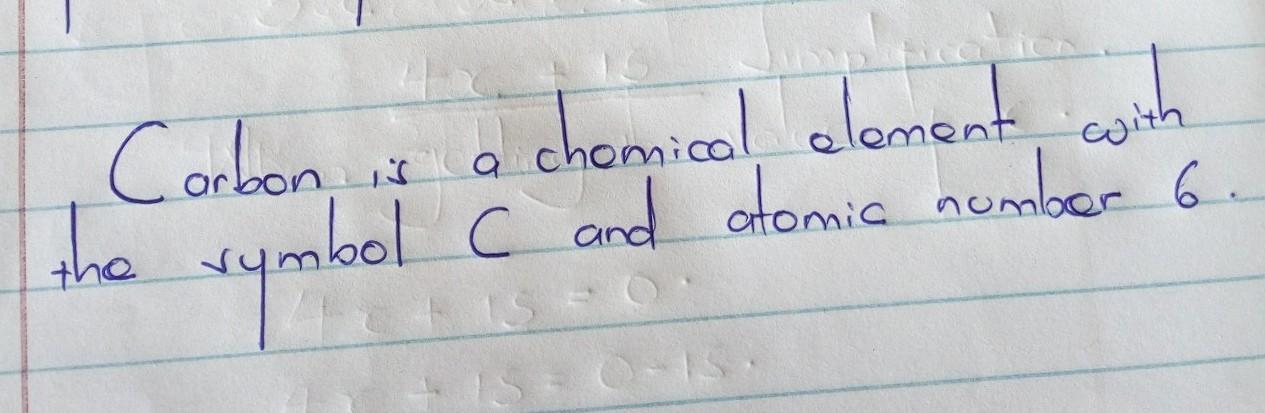 Carbon is a chemical element with
the symbol C and atomic number 6.